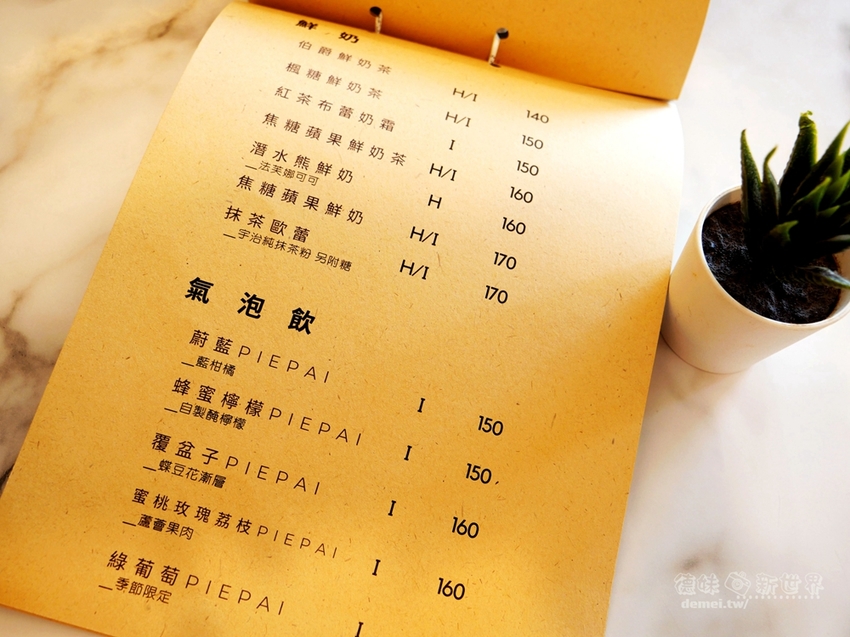 鮮奶
伯爵鮮奶茶 H/I 140
楓糖鮮奶茶 H/I 150
紅茶布蕾奶霜 I 150
焦糖蘋果鮮奶茶 H/I 160
潛水熊鮮奶 H 160
_法芙娜可可
焦糖蘋果鮮奶 H/I 170
抹茶歐蕾 H/I 170
_宇治純抹茶粉 另附糖
氣泡飲
蔚藍PIEPAI I 150
_藍柑橘
蜂蜜檸檬PIEPAI I 150
_自製醃檸檬
覆盆子PIEPAI I 160
_蝶豆花漸層
蜜桃玫瑰荔枝PIEPAI I 160
_蘆薈果肉
綠葡萄PIEPAI I
_季節限定
德味新世界
demei.tw/